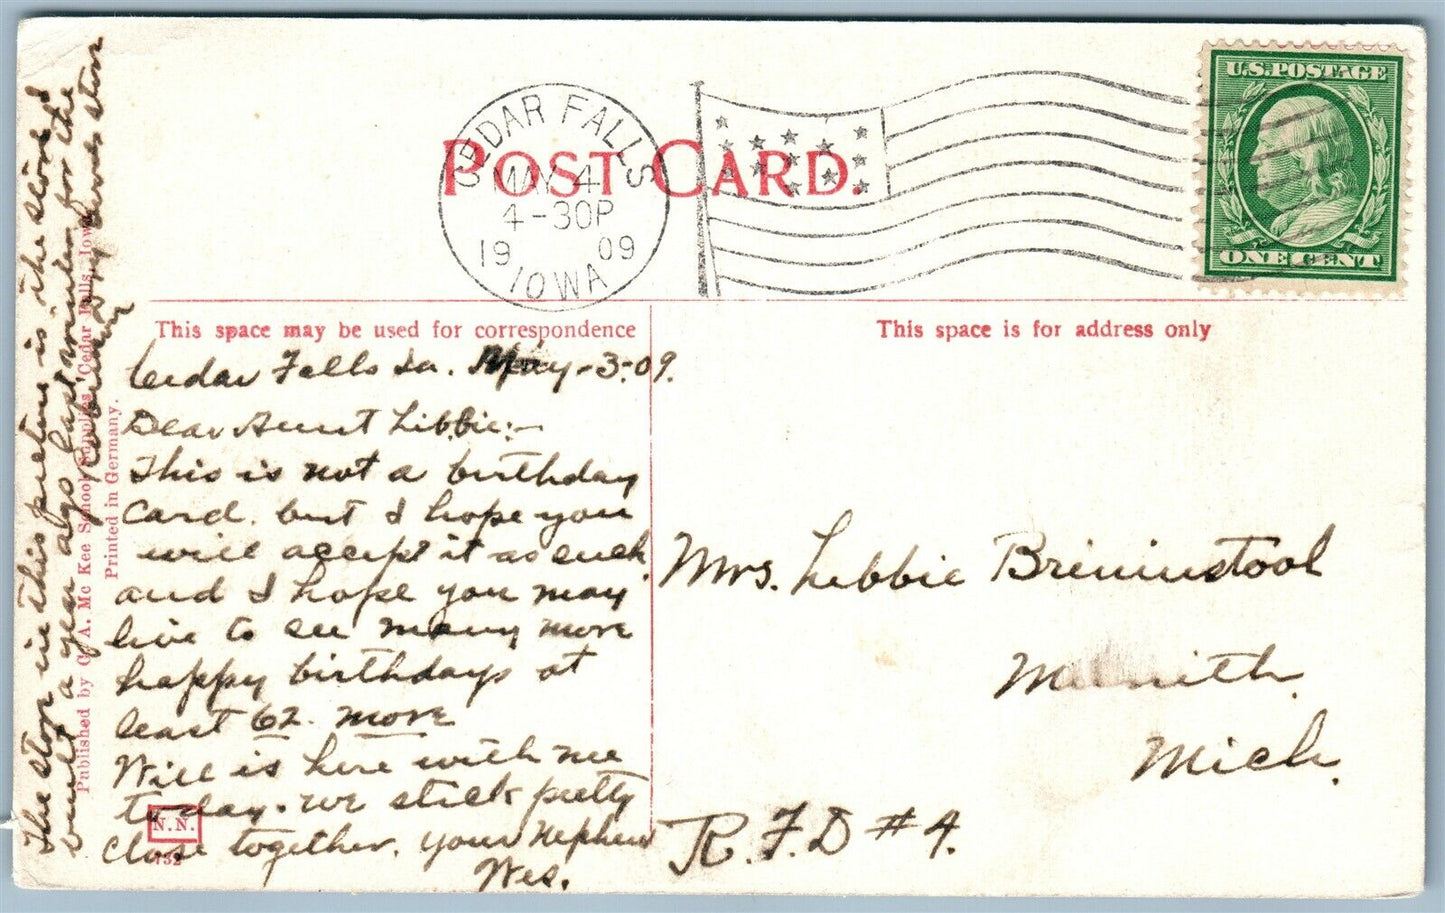 POST CARD.
CEDAR FALLS
MAY 4
4-30P
19 09
IOWA
U.S. POSTAGE
ONE CENT
This space may be used for correspondence
This space is for address only
Cedar Falls Ia. May-3-09.
Dear Aunt Libbie:-
This is not a birthday
card. but I hope you
will accept it as such.
and I hope you may
live to see many more
happy birthdays at
least 62. more
Will is here with me
to day. we stick pretty
close together. your Nephew
Wes.
Mrs. Libbie Breininstool
Mich.
R.F.D #4.
The stop in this picture is the store I
built a year ago last winter for the
Published by C. A. Mc Kee School Supplies, Cedar Falls, Iowa
Printed in Germany.
N.N.
132